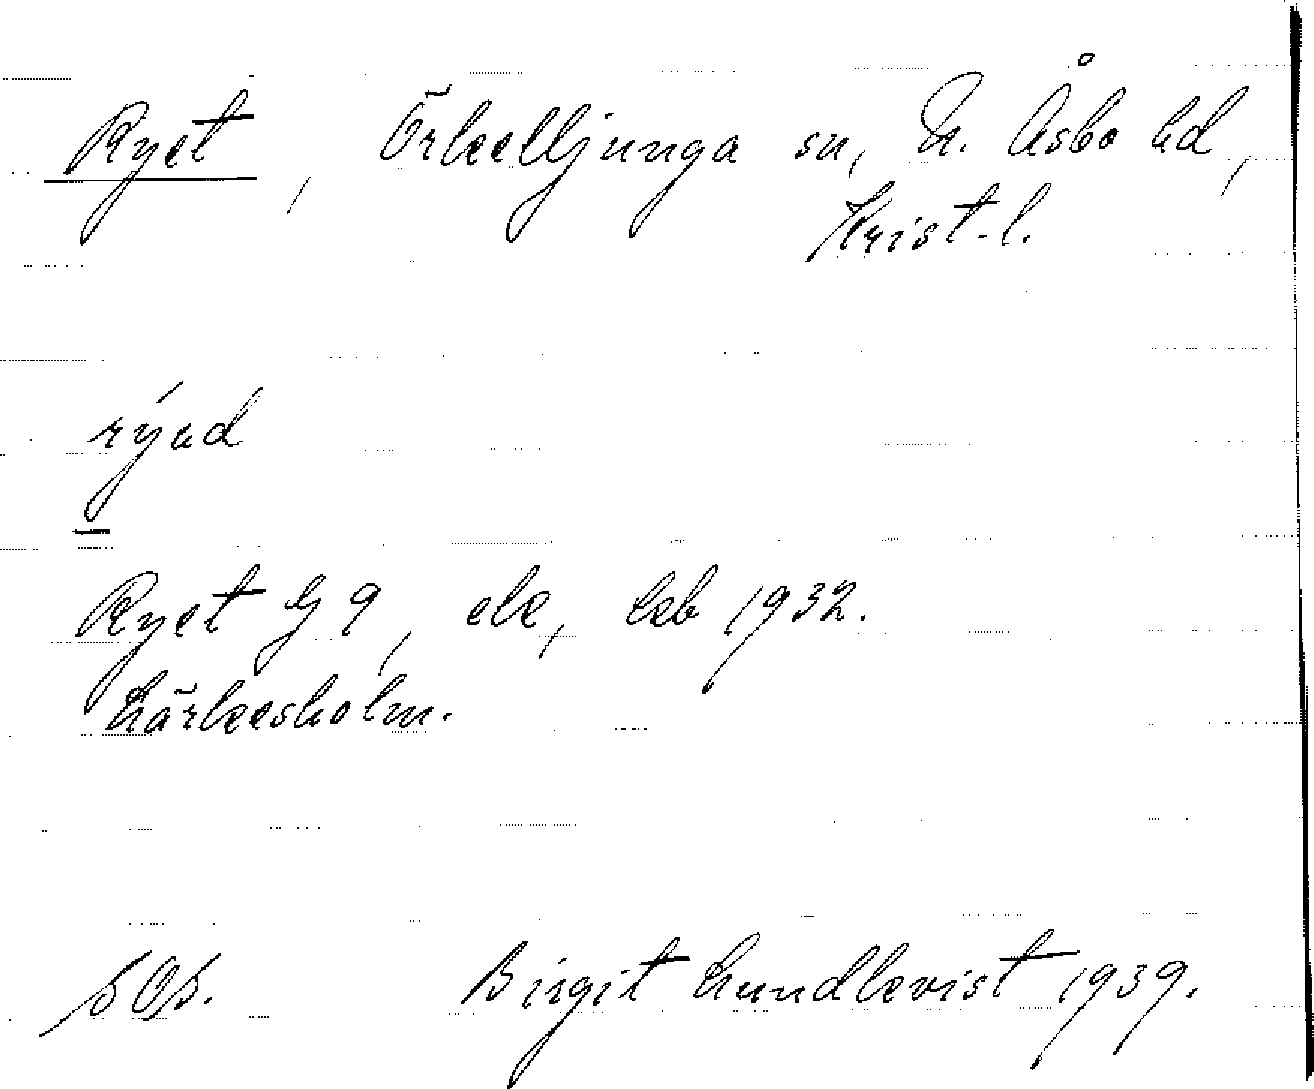 Ryet, Örkelljunga sn, N. Åsbo hd,
Krist. l.
Ryet G 9, ek, lsb 1932.
Lärkesholm.
SOS. Birgit Lundkvist 1939.